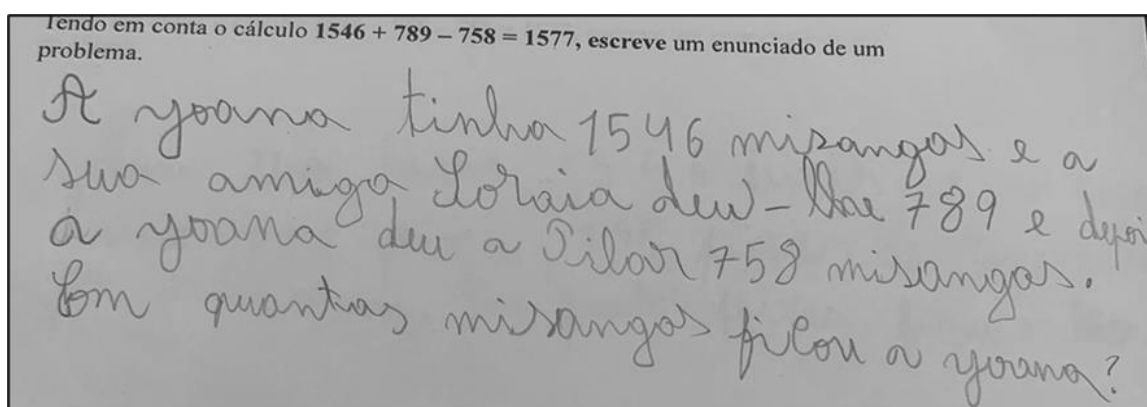 Tendo em conta o cálculo 1546 + 789 – 758 = 1577, escreve um enunciado de um
problema.
A yoana tinha 1546 misangas e a
sua amiga Soraia deu-lhe 789 e depoi
a yoana deu a Pilar 758 misangas.
Com quantas misangas ficou a yoana?